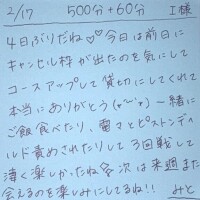 2/17 500分+60分 I様
4日ぶりだね♡♡今日は前日に
キャンセル枠が出たのを気にして
コースアップして貸切にしてくれて
本当にありがとう(〃▽〃)一緒に
ご飯食べたり、電マとピストンディ
ルド責めされたりして3回戦して
凄く楽しかったね 次は来週また
会えるのを楽しみにしてるね!! みと